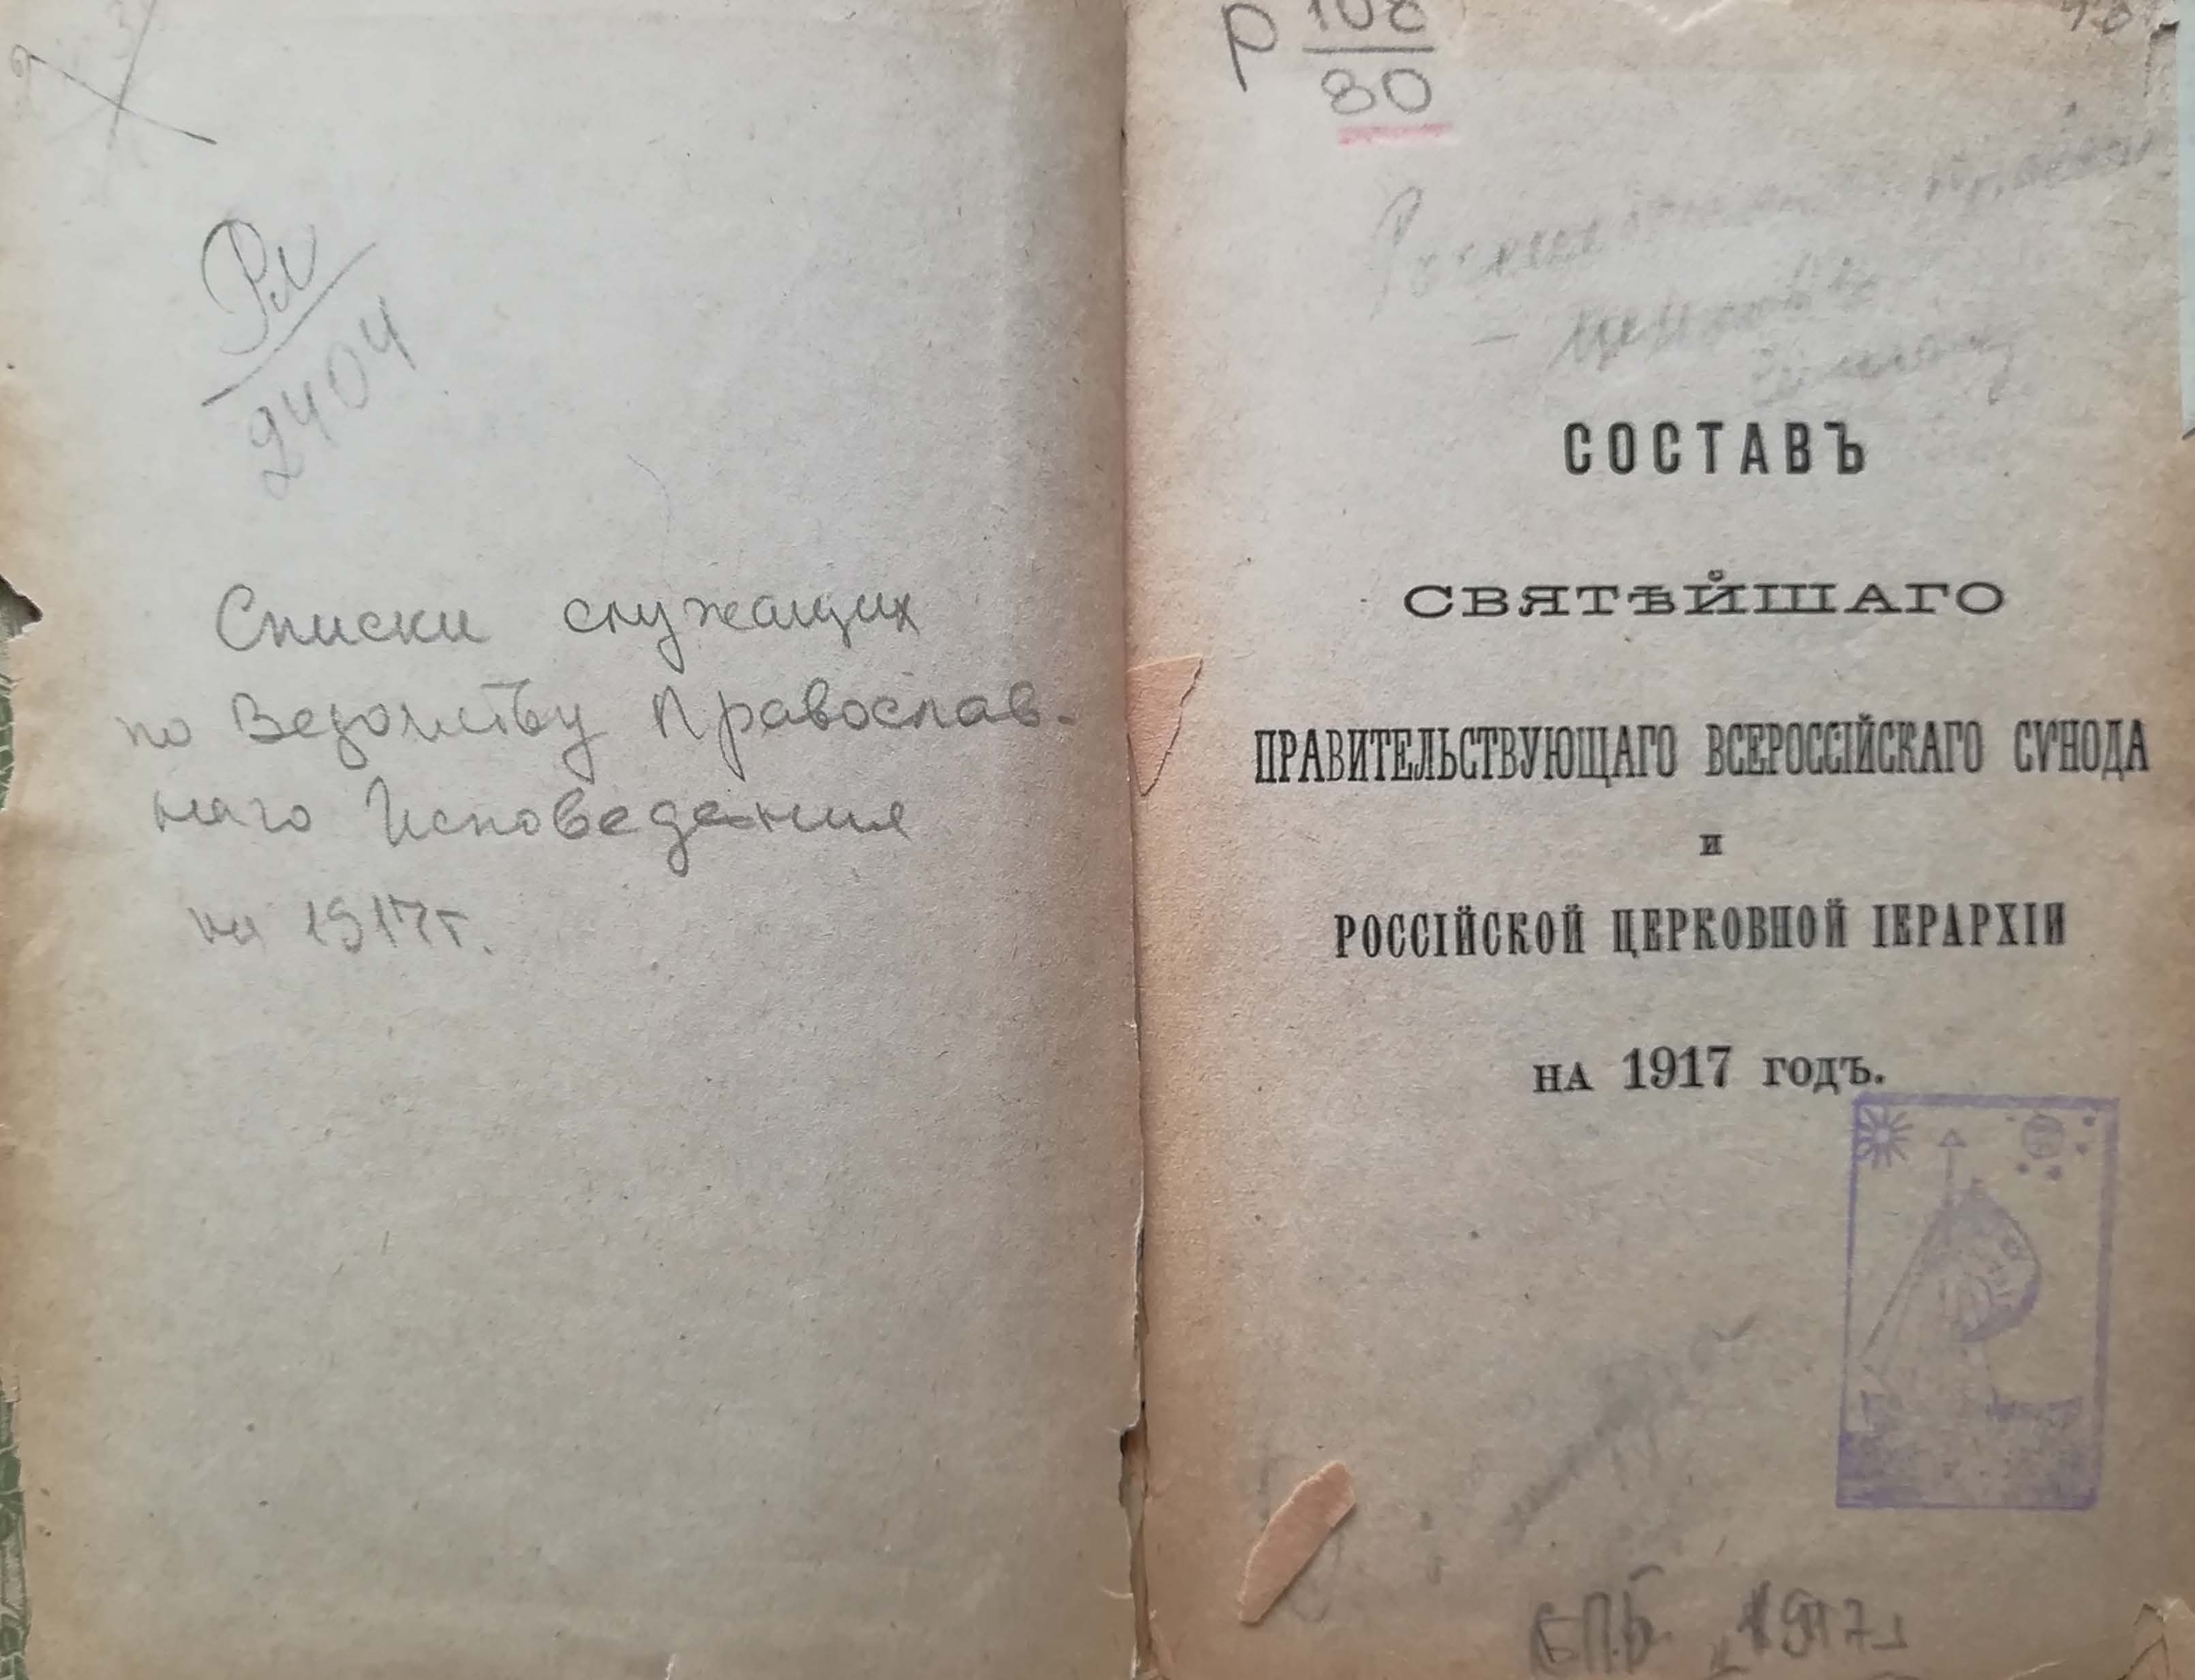 Рл
2404
Списки служащих
по Ведомству Православ-
наго Исповедания
на 1917г.
Р 108
80
СОСТАВЪ
СВЯТѢЙШАГО
ПРАВИТЕЛЬСТВУЮЩАГО ВСЕРОССІЙСКАГО СѴНОДА
И
РОССІЙСКОЙ ЦЕРКОВНОЙ ІЕРАРХІИ
НА 1917 ГОДЪ.
1917